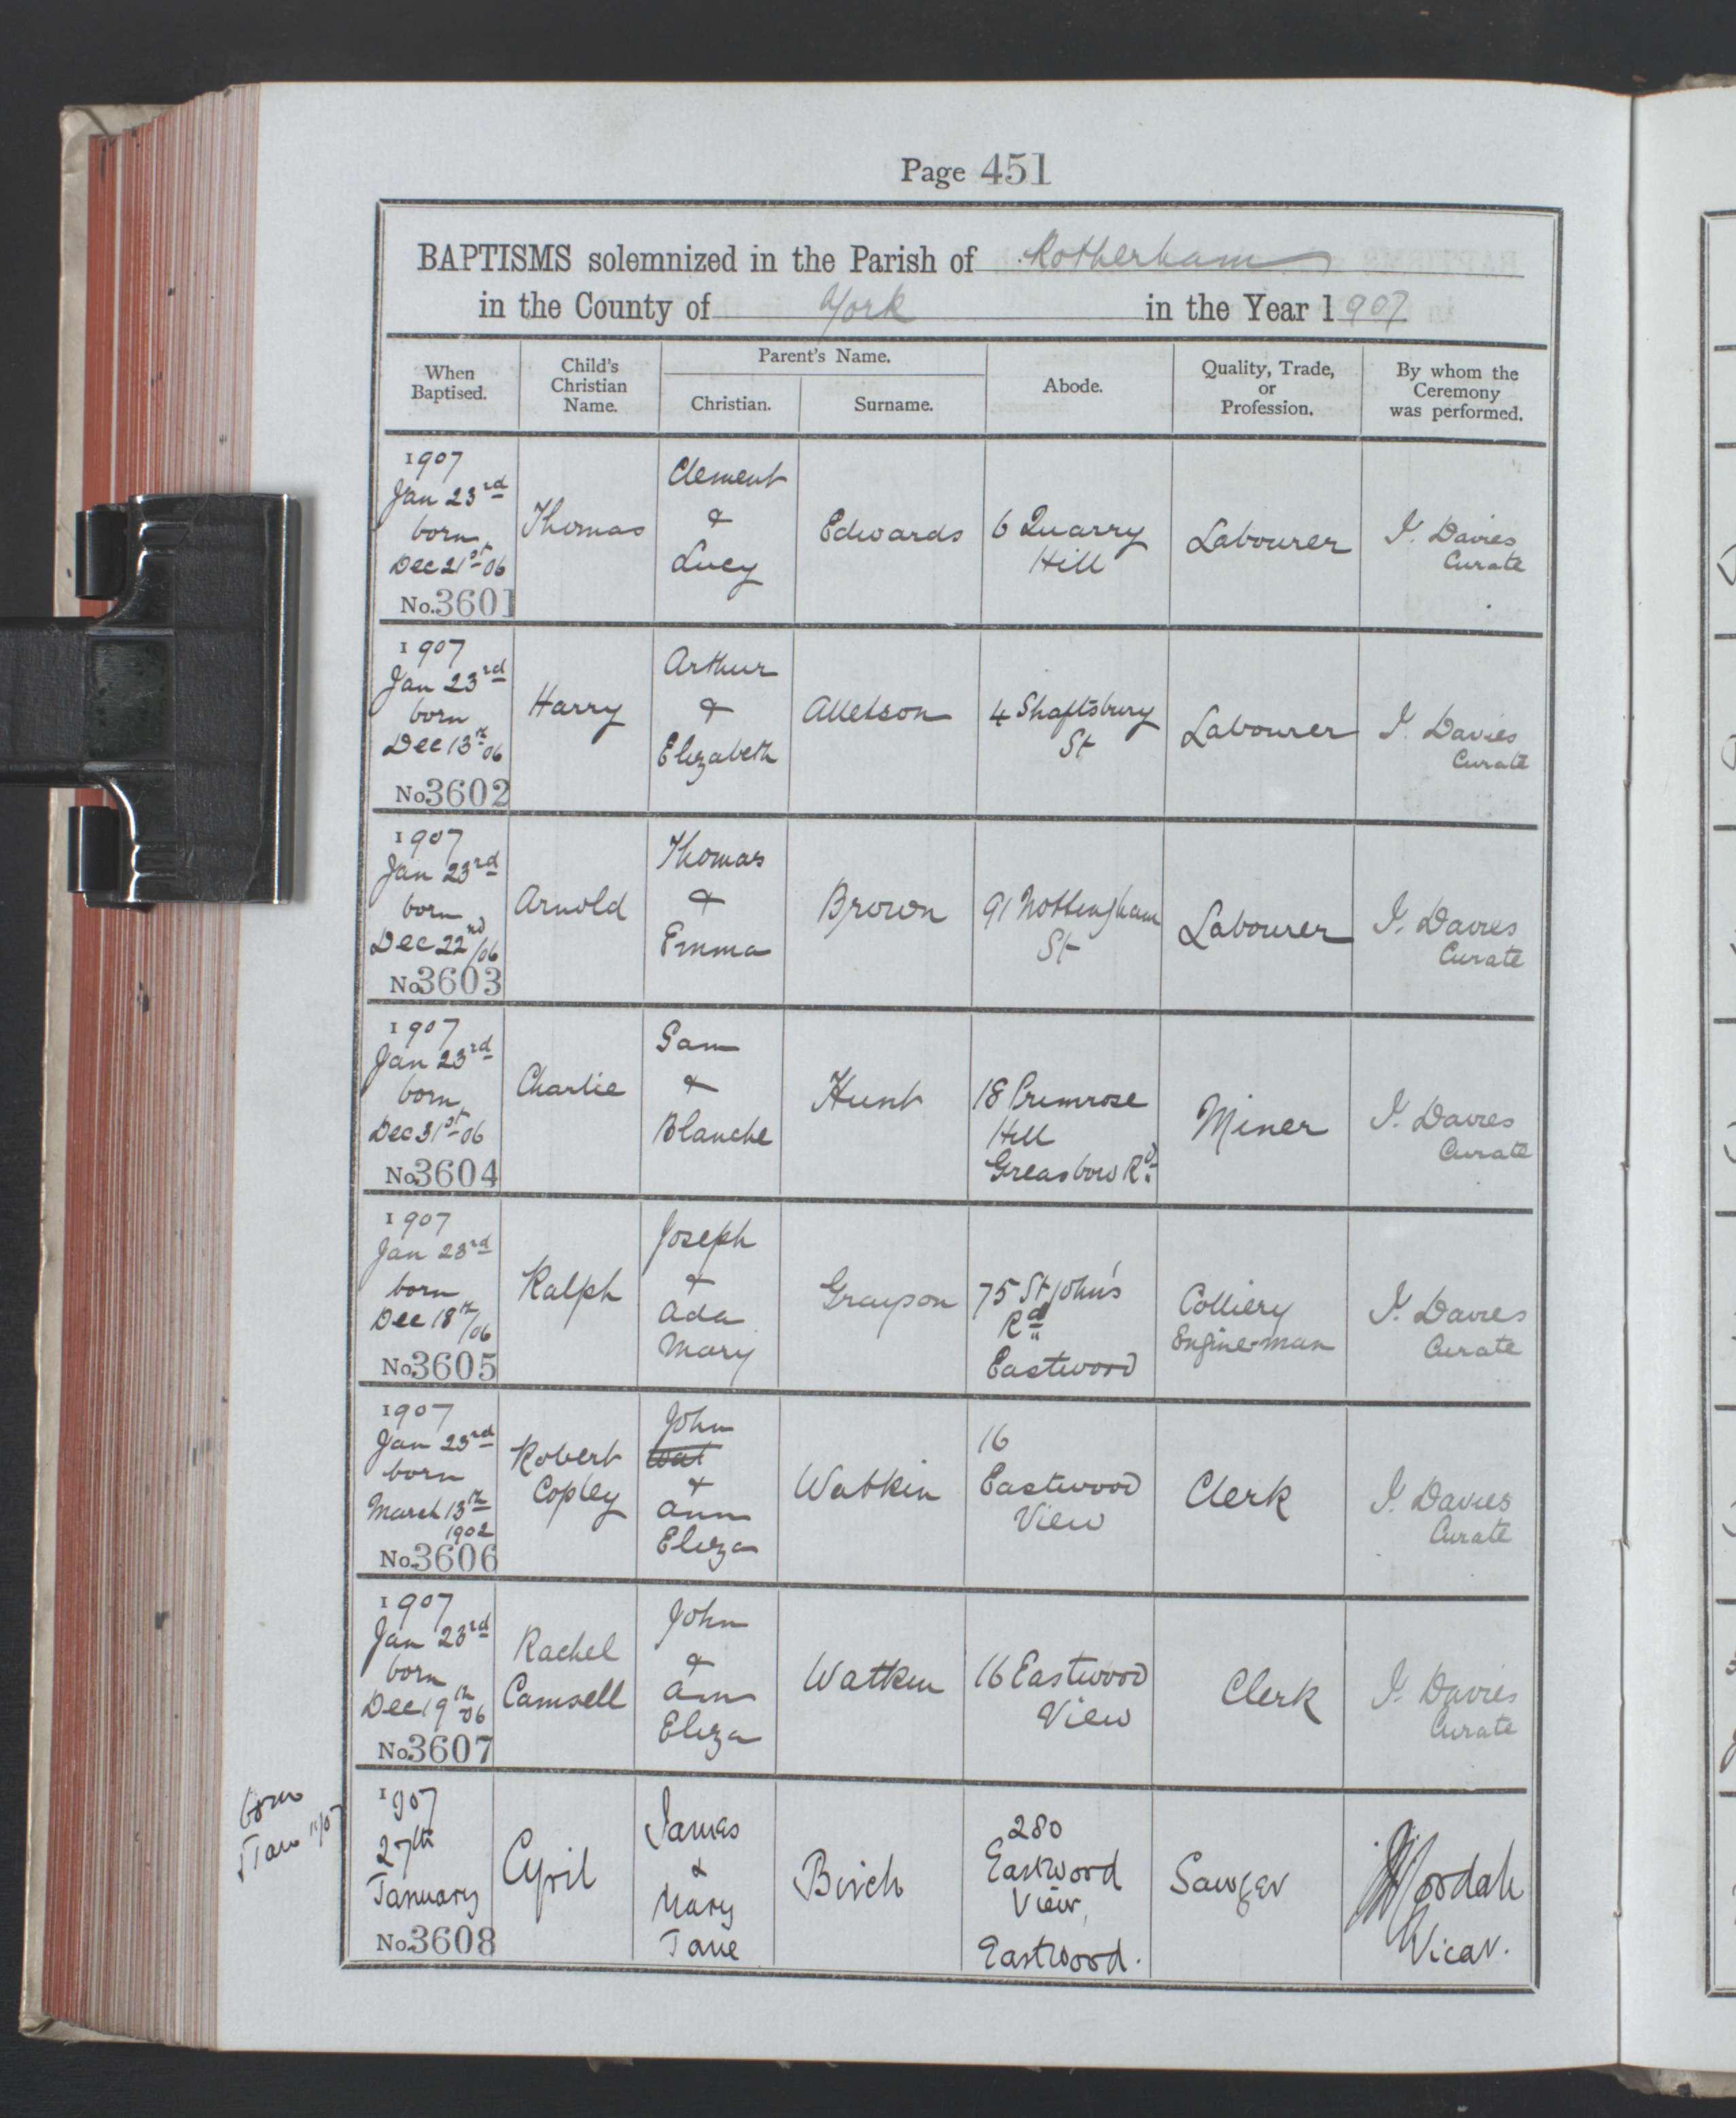 Page 451
BAPTISMS solemnized in the Parish of Rotherham
in the County of York in the Year 1907
When Baptised. Child's Christian Name. Parent's Name. Christian. Surname. Abode. Quality, Trade, or Profession. By whom the Ceremony was performed.
1907
Jan 23rd
born
Dec 21st 06
No. 3601
Thomas
Clement
&
Lucy
Edwards
6 Quarry
Hill
Labourer
I. Davies
Curate
1907
Jan 23rd
born
Dec 13th 06
No. 3602
Harry
Arthur
&
Elizabeth
Alletson
4 Shaftsbury
St
Labourer
I. Davies
Curate
1907
Jan 23rd
born
Dec 22nd/06
No. 3603
Arnold
Thomas
&
Emma
Brown
91 Nottingham
St
Labourer
I. Davies
Curate
1907
Jan 23rd
born
Dec 31st 06
No. 3604
Charlie
Sam
&
Blanche
Hunt
18 Primrose
Hill
Greasbow Rd
Miner
I. Davies
Curate
1907
Jan 23rd
born
Dec 18th/06
No. 3605
Ralph
Joseph
+
Ada
Mary
Grayson
75 St John's
Rd
Eastwood
Colliery
Engine-man
I. Davies
Curate
1907
Jan 23rd
born
March 13th
1902
No. 3606
Robert
Copley
John
Wat
+
Ann
Eliza
Watkin
16
Eastwood
View
Clerk
I. Davies
Curate
1907
Jan 23rd
born
Dec 19th 06
No. 3607
Rachel
Camsell
John
&
Ann
Eliza
Watkin
16 Eastwood
View
Clerk
I. Davies
Curate
born
Jan 11/07
1907
27th
January
No. 3608
Cyril
James
&
Mary
Jane
Birch
280
Eastwood
View,
Eastwood.
Sawyer
Vicar.